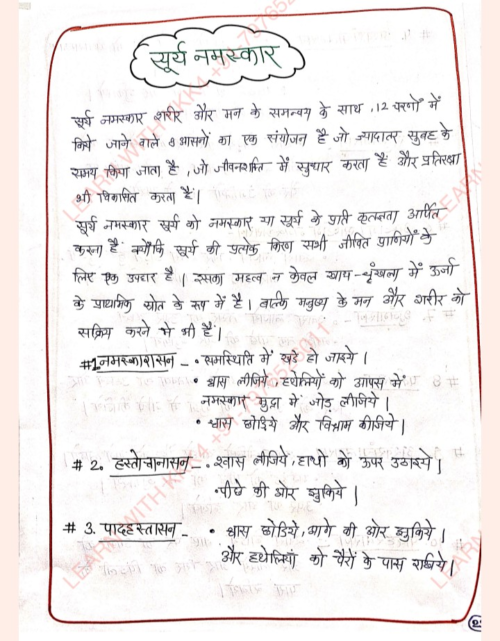 सूर्य नमस्कार
सूर्य नमस्कार शरीर और मन के समन्वय के साथ, 12 चरणों में
किये जाने वाले 8 आसनों का एक संयोजन है जो ज्यादातर सुबह के
समय किया जाता है, जो जीवनशक्ति में सुधार करता है और प्रतिरक्षा
भी विकसित करता है।
सूर्य नमस्कार सूर्य को नमस्कार या सूर्य के प्रति कृतज्ञता अर्पित
करना है क्योंकि सूर्य की प्रत्येक किरण सभी जीवित प्राणियों के
लिए एक उपहार है। इसका महत्व न केवल खाद्य-श्रृंखला में ऊर्जा
के प्राथमिक स्रोत के रूप में है। बल्कि मनुष्य के मन और शरीर को
सक्रिय करने में भी है।
#1 नमस्कारासन - • समस्थिति में खड़े हो जाइये।
• श्वास लीजिये, हथेलियों को आपस में
नमस्कार मुद्रा में जोड़ लीजिये।
• श्वास छोड़िये और विश्राम कीजिये।
# 2. हस्तोत्तानासन - • श्वास लीजिये, हाथों को ऊपर उठाइये।
• पीछे की ओर झुकिये।
# 3. पादहस्तासन - • श्वास छोड़िये, आगे की ओर झुकिये।
और हथेलियों को पैरों के पास रखिये।
LEARN WITH IKKA